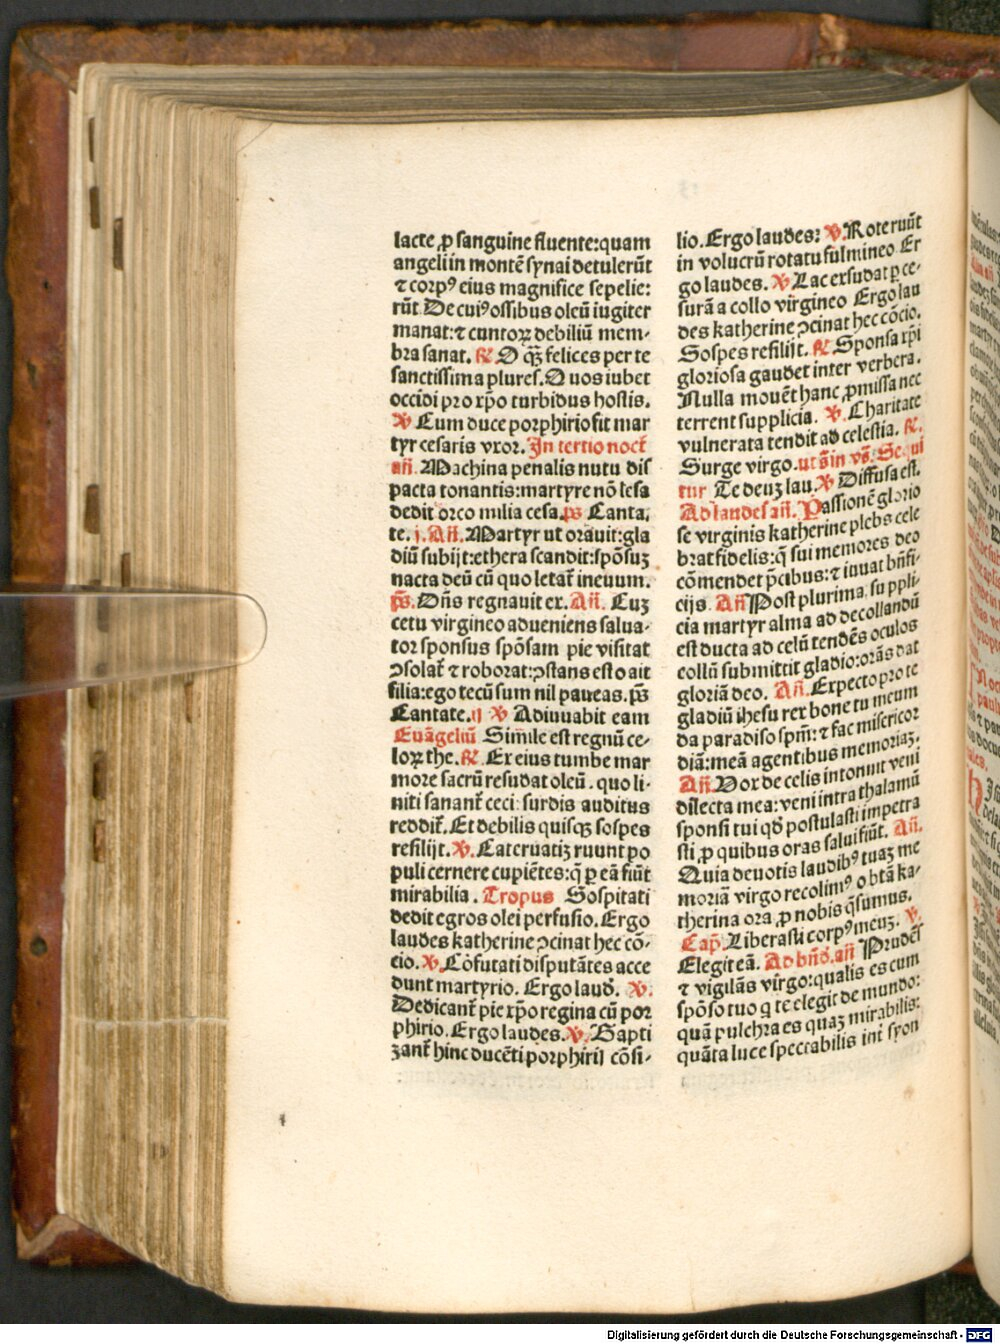 lacte ꝓ sanguine fluente:quam
angeli in montē synai detulerūt
⁊ corpꝰ eius magnifice sepelie:
rūt De cuiꝰ ossibus oleū iugiter
manat:⁊ cunctoꝝ debiliū mem-
bra sanat. ℟ O qꝫ felices per te
sanctissima plures.Quos iubet
occidi pro xp̄o turbidus hostis.
℣ Cum duce porphirio fit mar
tyr cesaris vxor. In tertio noct̄
an̄. Machina penalis nutu dis
pacta tonantis:martyre nō lesa
dedit orco milia cesa.ps Canta,
te.j.An̄.Martyr ut orauit:gla
diū subijt:ethera scandit:spōsuꝫ
nacta deū cū quo letat̄ in euum.
ps̄. Dn̄s regnauit ex.An̄. Cuꝫ
cetu virgineo adueniens salua-
tor sponsus spōsam pie visitat
ꝯsolat̄ ⁊ roborat:ꝯstans esto ait
filia:ego tecū sum nil paueas.ps̄
Cantate.ij ℣ Adiuuabit eam
Euāgeliū Simile est regnū ce-
loꝝ the.℟ Ex eius tumbe mar
more sacrū resudat oleū.quo li-
niti sanant̄ ceci:surdis auditus
reddit̄.Et debilis quisqꝫ sospes
resilijt.℣.Cateruatiꝫ ruunt po
puli cernere cupiētes:q̄ ꝑ eā fiūt
mirabilia. Tropus Sospitati
dedit egros olei perfusio.Ergo
laudes katherine ꝯcinat hec cō-
cio.℣.Cōfutati disputātes acce
dunt martyrio. Ergo laud̄. ℣:
Dedicant̄ pie xp̄o regina cū por
phirio.Ergo laudes.℣.Bapti
zant̄ hinc ducēti porphirij cōsi-
lio.Ergo laudes: ℣.Rote ruūt
in volucrū rotatu fulmineo Er
go laudes. ℣ Lac exsudat ꝑ ce-
surā a collo virgineo Ergo lau
des katherine ꝯcinat hec cōcio.
Sospes resilijt. ℟ Sponsa xp̄i
gloriosa gaudet inter verbera.
Nulla mouēt hanc ꝓmissa nec
terrent supplicia. ℣. Charitate
vulnerata tendit ad celestia. ℟.
Surge virgo.ut s̄ in vs̄. Se qui
tur Te deuꝫ lau.℣ Diffusa est.
Ad laudes an̄. Passionē glorio
se virginis katherine plebs cele
brat fidelis:q̄ sui memores deo
cōmendet p̄cibus:⁊ iuuat bn̄fi-
cijs. An̄ Post plurima suppli-
cia martyr alma ad decollandū
est ducta ad celū tendēs oculos
collū submittit gladio:orās dat
gloriā deo. An̄. Expecto pro te
gladiū ihesu rex bone tu meum
da paradiso spm̄:⁊ fac misericor
diā:meā agentibus memoriaꝫ.
An̄.Vox de celis intonuit veni
dilecta mea:veni intra thalamū
sponsi tui qd̄ postulasti impetra
sti ꝓ quibus oras salui fiūt. An̄.
Quia deuotis laudibꝰ tuaꝫ me
moriā virgo recolimꝰ o btā ka-
therina ora ꝓ nobis q̄sumus.
Cap̄.Liberasti corpꝰ meuꝫ. ℣.
Elegit eā. Ad bn̄d.an̄ Prudēs
⁊ vigilās virgo:qualis es cum
spōso tuo q te elegit de mundo:
quā pulchra es quaꝫ mirabilis:
quāta luce spectabilis int̄ syon
Digitalisierung gefördert durch die Deutsche Forschungsgemeinschaft - DFG